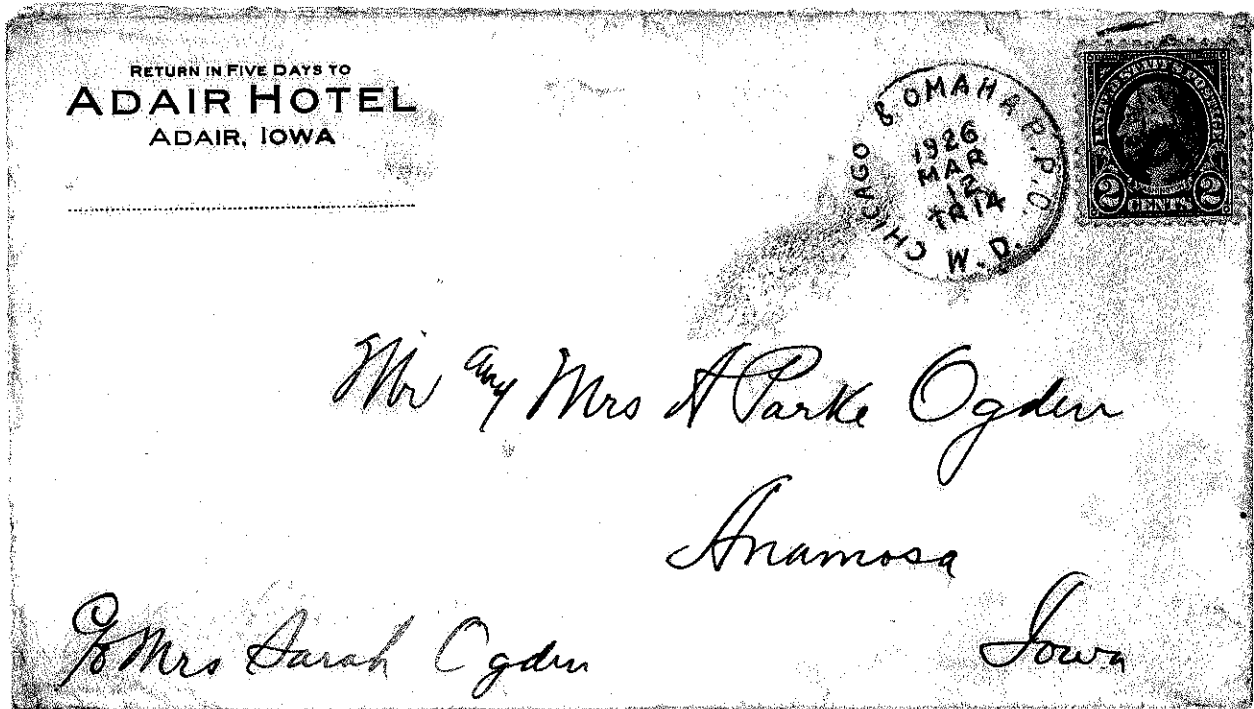 RETURN IN FIVE DAYS TO
ADAIR HOTEL
ADAIR, IOWA
CHICAGO & OMAHA R.P.O.
1926
MAR
12
TR 14
W.D.
UNITED STATES POSTAGE
2 CENTS 2
Mr any Mrs A Parke Ogden
Anamosa
Iowa
c/o Mrs Sarah Ogden